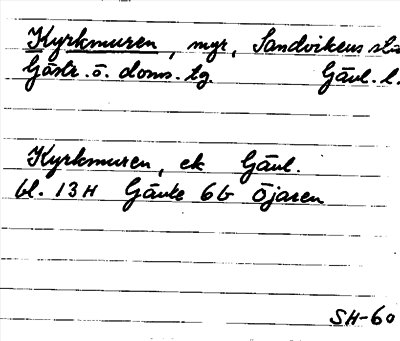 Kyrkmuren, myr, Sandvikens sta
Gästr. ö. doms. tg. Gävl. l.
Kyrkmuren, ek Gävl.
bl. 13 H Gävle 6 b Öjaren
SH-60